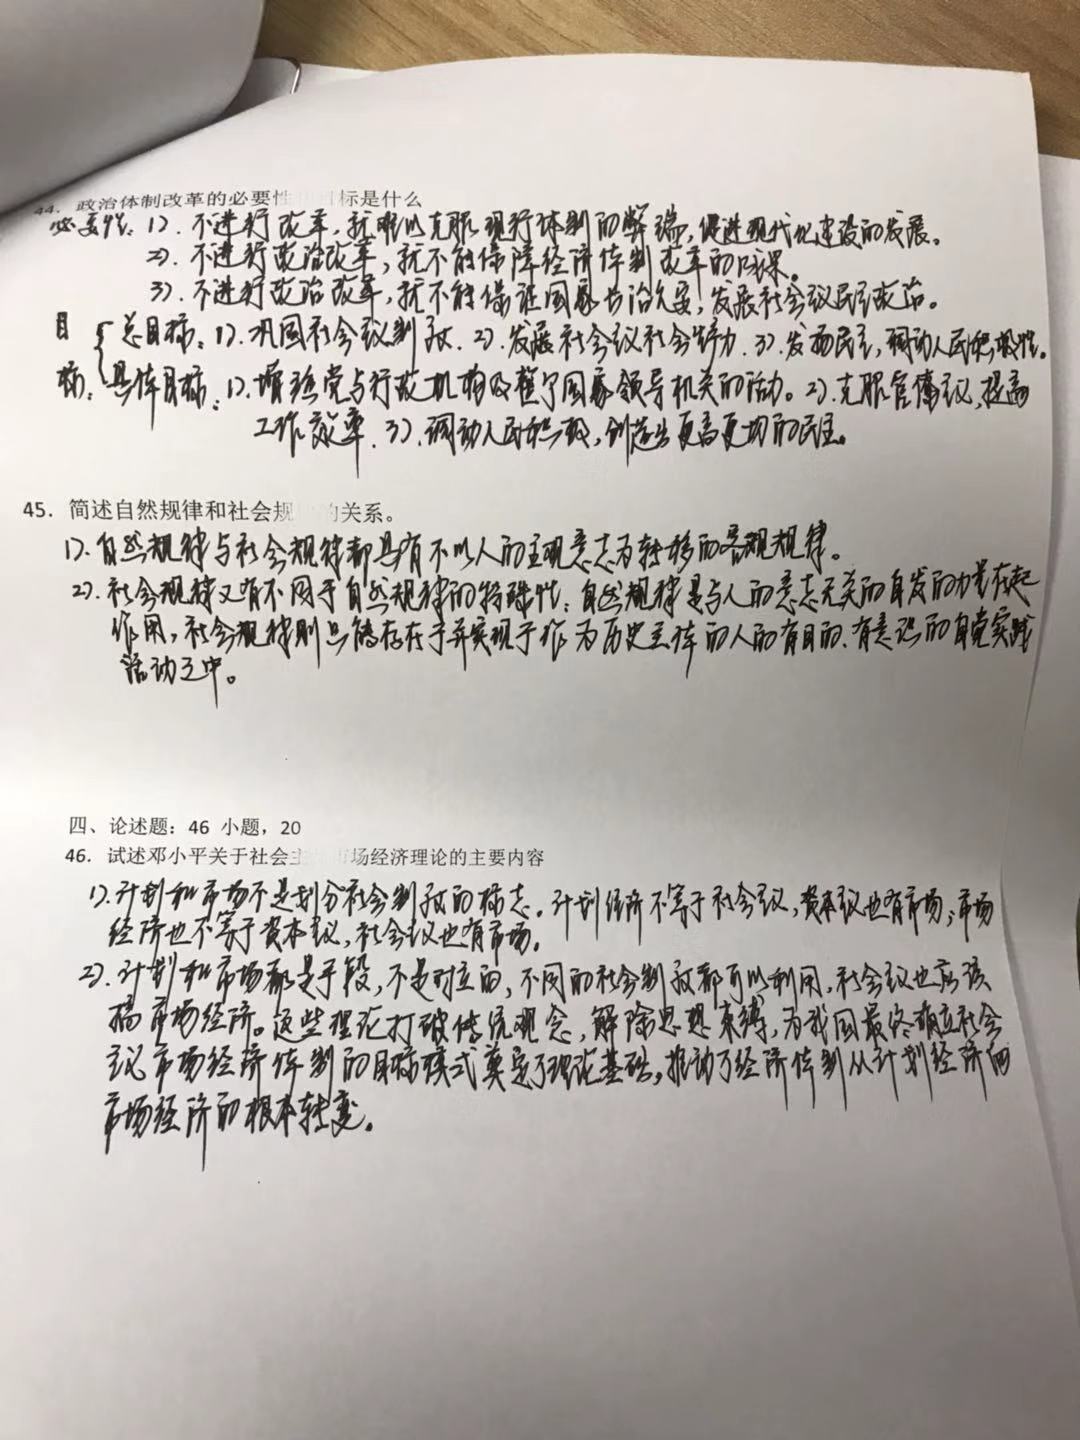 44. 政治体制改革的必要性 目标是什么
必要性：1). 不进行改革，就难以克服现行体制的弊端，促进现代化建设的发展。
2). 不进行政治改革，就不能保障经济体制改革的成果。
3). 不进行政治改革，就不能保证国家长治久安，发展社会议民主政治。
目标：总目标：1). 巩固社会议制度. 2). 发展社会议社会生产力. 3). 发扬民主，调动人民积极性。
具体目标：1). 增强党与行政机构及整个国家领导机关的活力。2). 克服官僚议，提高
工作效率. 3). 调动人民积极，创造出更高更切的民主。
45. 简述自然规律和社会规 的关系。
1). 自然规律与社会规律都具有不以人的主观意志为转移的客观规律。
2). 社会规律又有不同于自然规律的特殊性：自然规律是与人的意志无关的自发的力量在起
作用，社会规律则只能存在于并实现于作为历史主体的人的有目的、有意识的自觉实践
活动之中。
四、论述题：46 小题，20
46. 试述邓小平关于社会主 市场经济理论的主要内容
1). 计划和市场不是划分社会制度的标志。计划经济不等于社会议，资本议也有市场；市场
经济也不等于资本议，社会议也有市场。
2). 计划和市场都是手段，不是对立的，不同的社会制度都可以利用，社会议也应该
搞市场经济。这些理论打破传统观念，解除思想束缚，为我国最终确立社会
议市场经济体制的目标模式奠定了理论基础，推动了经济体制从计划经济向
市场经济的根本转变。